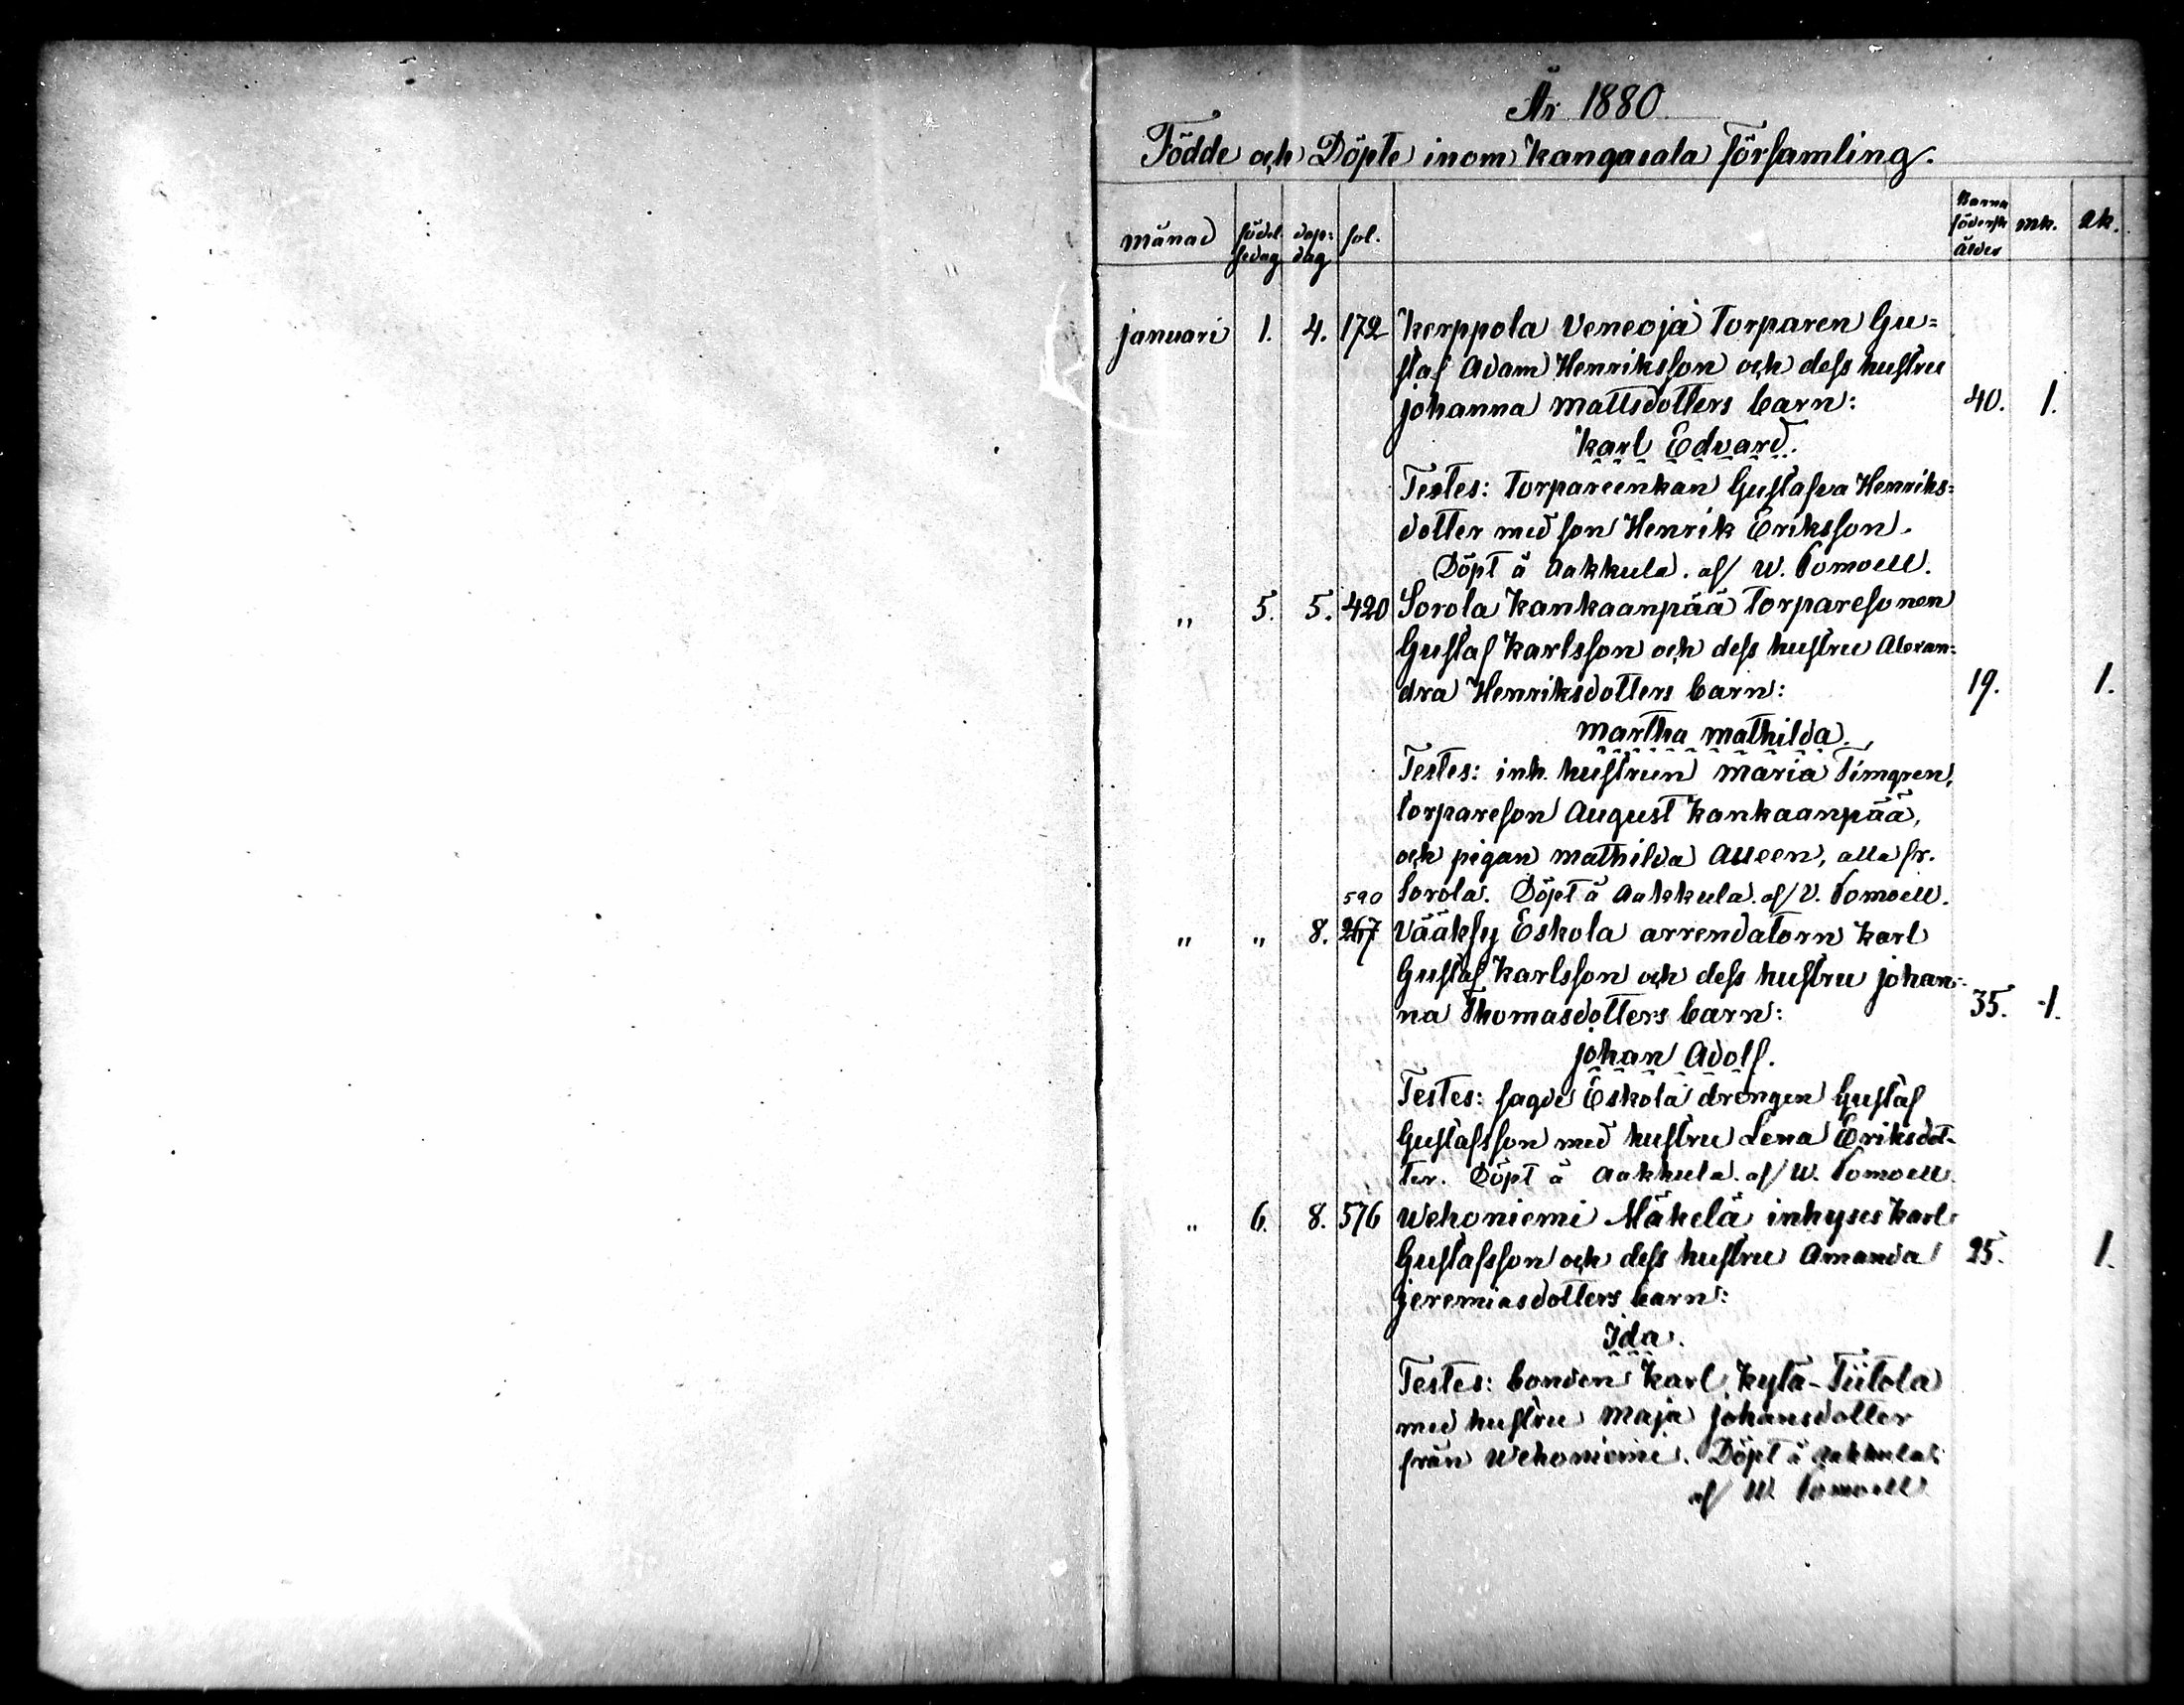 År 1880
Födde och Döpte inom Kangasala församling.
månad födel- dop- fol. Barna mk. qk.
sedag dag födersk
ålder
januari 1. 4. 172 Kerppola Veneoja Torparen Gu=
staf Adam Henriksson och dess hustru
Johanna Mattsdotters barn: 40. 1.
Karl Edvard.
Testes: Torpareenkan Gustafva Henriks=
dotter med son Henrik Eriksson.
Döpt å Aakkula. af W. Pomoell.
" 5. 5. 420 Sorola Kankaanpää Torparesonen
Gustaf Karlsson och dess hustru Alexan=
dra Henriksdotters barn: 19. 1.
Martha Mathilda.
Testes: inh. hustrun Maria Timgren,
torpareson August Kankaanpää,
och pigan Mathilda Alleen, alla fr.
590 Sorola. Döpt å Aakkula. af V. Pomoell.
" " 8. 267 Vääksy Eskola arrendatorn Karl
Gustaf Karlsson och dess hustru Johan=
na Thomasdotters barn: 35. 1.
Johan Adolf.
Testes: sagde Eskola drengen Gustaf
Gustafsson med hustru Lena Eriksdot-
ter. Döpt å Aakkula. af W. Pomoell.
" 6. 8. 576 Wehoniemi Mäkelä inhyses Karl
Gustafsson och dess hustru Amanda 25. 1.
Jeremiasdotters barn:
Ida.
Testes: bonden Karl Kylä-Tiitola
med hustru Maja Johansdotter
från Wehoniemi. Döpt å Aakkula
af W. Pomoell